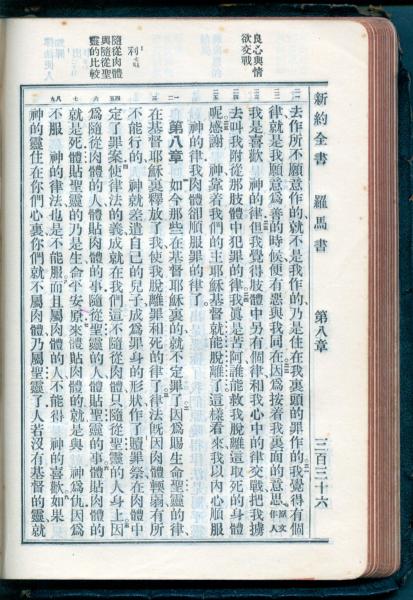 新約全書 羅馬書 第八章 三百三十六
良心與情
欲交戰
隨從肉體
與隨從聖
靈的比較
去作所不願意作的、就不是我作的、乃是住在我裏頭的罪作的。我覺得有個
律、就是我願意爲善的時候、便有惡與我同在。因爲按着我裏面的意思原文作人
我是喜歡 神的律、但我覺得肢體中另有個律、和我心中的律交戰、把我擄
去叫我附從那肢體中犯罪的律。我眞是苦阿、誰能救我脫離這取死的身體
呢。感謝 神、靠着我們的主耶穌基督就能脫離了。這樣看來、我以內心順服
神的律、我肉體卻順服罪的律了。
第八章 如今那些在基督耶穌裏的、就不定罪了。因爲賜生命聖靈的律、
在基督耶穌裏釋放了我、使我脫離罪和死的律了。律法旣因肉體輭弱、有所
不能行的、 神就差遣自己的兒子、成爲罪身的形狀、作了贖罪祭、在肉體中
定了罪案、使律法的義成就在我們這不隨從肉體只隨從聖靈的人身上。因
爲隨從肉體的人、體貼肉體的事、隨從聖靈的人、體貼聖靈的事。體貼肉體的
就是死、體貼聖靈的乃是生命平安。原來體貼肉體的、就是與 神爲仇、因爲
不服 神的律法、也是不能服。而且屬肉體的人、不能得 神的喜歡。如果
神的靈住在你們心裏、你們就不屬肉體、乃屬聖靈了。人若沒有基督的靈、就